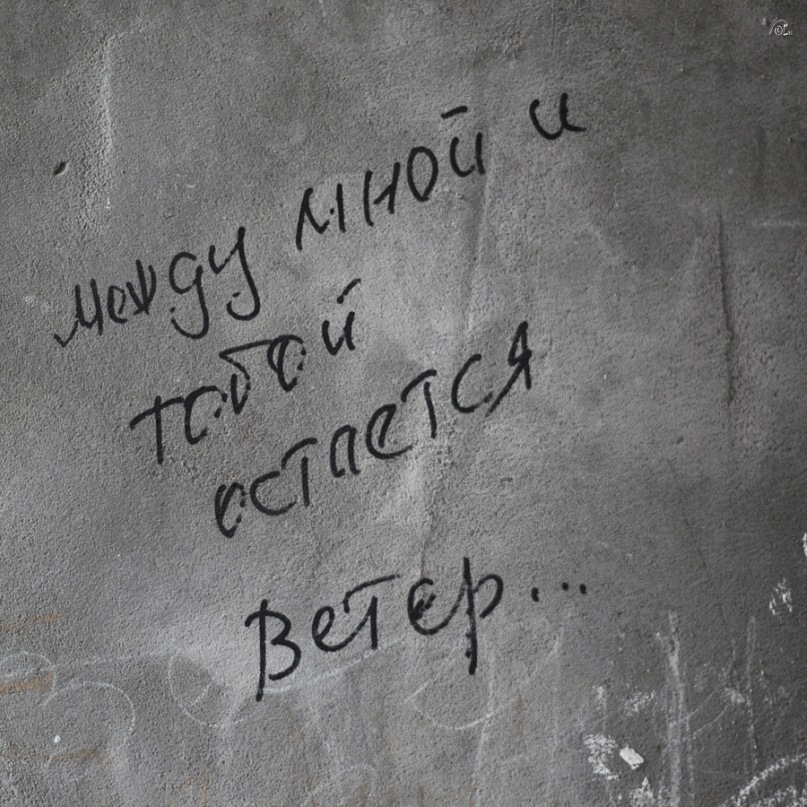 между мной и
тобой
остается
ветер...